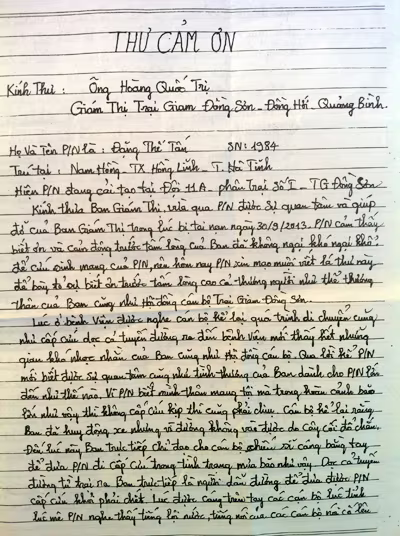 THƯ CẢM ƠN
Kính Thư : Ông Hoàng Quốc Trị
Giám Thị Trại Giam Đồng Sơn - Đồng Hới - Quảng Bình.
Họ Và Tên P/N là : Đăng Thế Tấn SN: 1984
Trú tại : Nam Hồng - TX Hồng Lĩnh - T. Hà Tĩnh
Hiện P/N đang cải tạo tại Đội 11A - phân Trại Số I - TG Đồng Sơn
Kính thưa Ban Giám Thị. vừa qua P/N được Sự quan tâm và giúp
đỡ của Ban Giám Thị trong lúc bị tai nạn ngày 30/9/2013. P/N cảm thấy
biết ơn và cảm động trước tấm lòng của Ban đã không ngại khó ngại khổ
để cứu Sinh mạng của P/N, nên hôm nay P/N xin mạo muội viết lá thư này
để bày tỏ sự biết ơn trước tấm lòng cao cả thương người như thể thương
thân của Ban cũng như Hội đồng cán bộ Trại Giam Đồng Sơn.
Lúc ở bệnh viện được nghe cán bộ kể lại quá trình di chuyển cũng
như cấp cứu dọc cả tuyến đường ra đến bệnh viện mới thấy hết những
gian khó nhọc nhằn của Ban cũng như Hội đồng cán bộ. Qua lời kể P/N
mới biết được Sự quan tâm cũng như tình thương của Ban dành cho P/N lớn
đến như thế nào. Vì P/N biết mình thân mang tội mà trong hoàn cảnh bão
lớn như vậy thì không cấp cứu kịp thì cũng phải chịu. Cán bộ kể lại rằng
Ban đã huy động xe nhưng vì đường không vào được do cây cối đổ chắn.
Đến lúc này Ban trực tiếp chỉ đạo cho cán bộ chiến sĩ cáng bằng tay
để đưa P/N đi Cấp Cứu trong tình trạng mưa bão như vậy. Dọc cả tuyến
đường từ trại ra Ban trực tiếp là người dẫn đường để đưa được P/N
cấp cứu khỏi phải chết. Lúc được cáng trên tay các cán bộ lúc tỉnh
lúc mê P/N nghe thấy tiếng lội nước, tiếng nói của các cán bộ nói có lúc